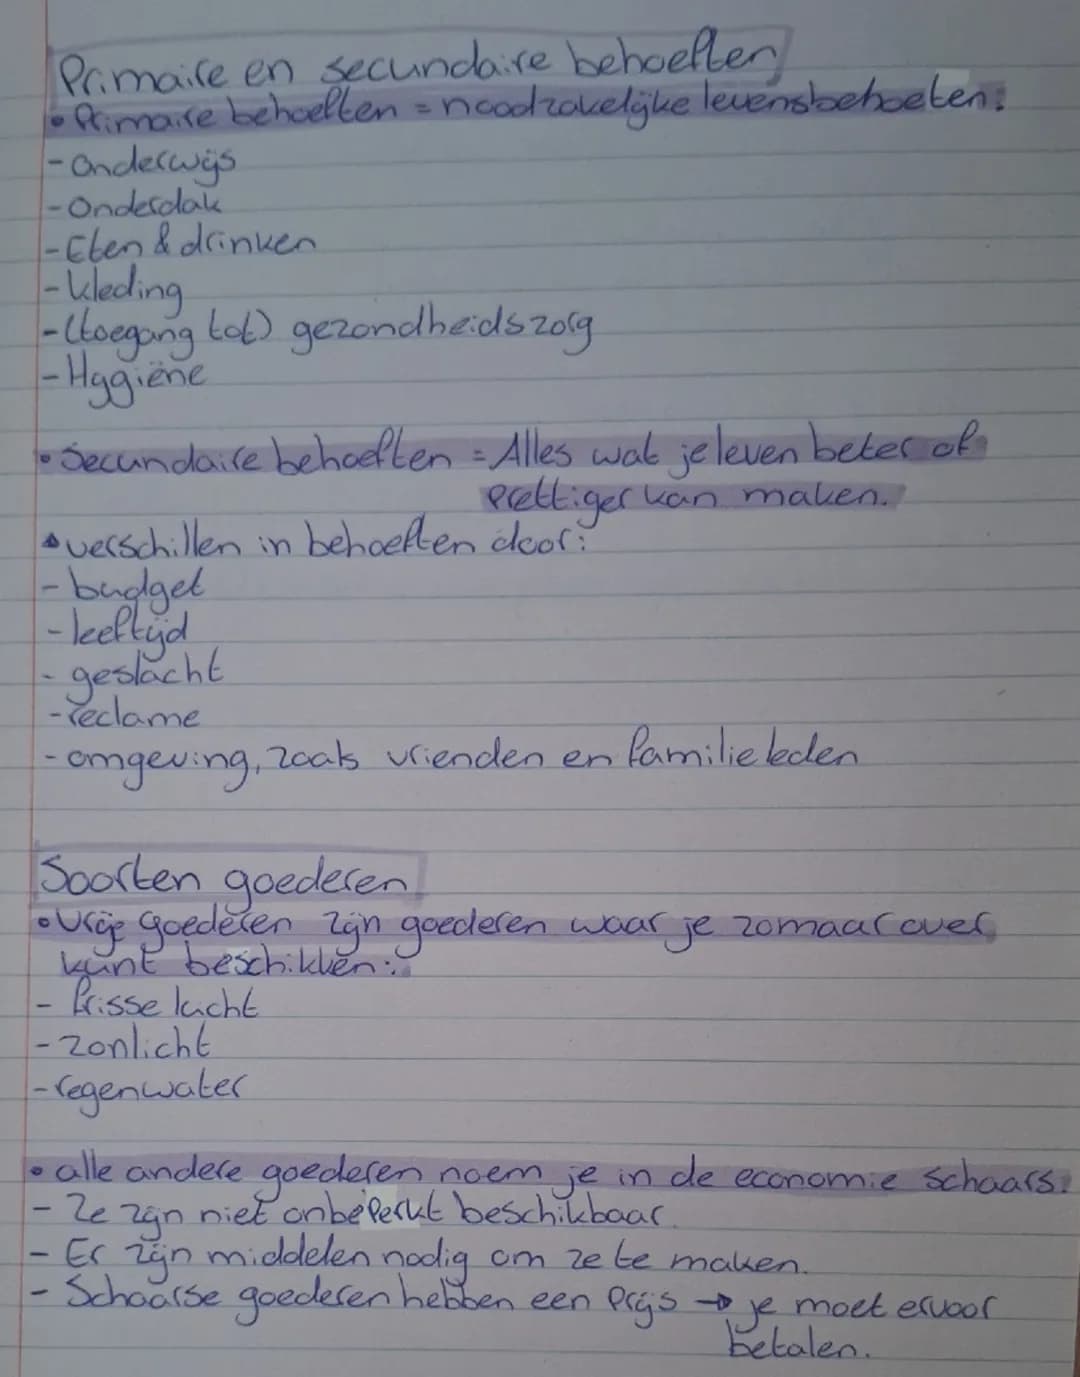 Primaire en secundaire behoeften
• Primaire behoeften = noodzakelijke levensbehoeten:
- Onderwijs
- Onderdak
- Eten & drinken
- kleding
- (toegang tot) gezondheidszorg
- Hygiëne
• Secundaire behoeften = Alles wat je leven beter of
prettiger kan maken.
• verschillen in behoeften door:
- budget
- leeftijd
- geslacht
- reclame
- omgeving, zoals vrienden en familieleden
Soorten goederen
• Vrije goederen zijn goederen waar je zomaar over
kunt beschikken:
- frisse lucht
- zonlicht
- regenwater
• alle andere goederen noem je in de economie schaars:
- Ze zijn niet onbeperkt beschikbaar.
- Er zijn middelen nodig om ze te maken.
- Schaarse goederen hebben een prijs → je moet ervoor
betalen.